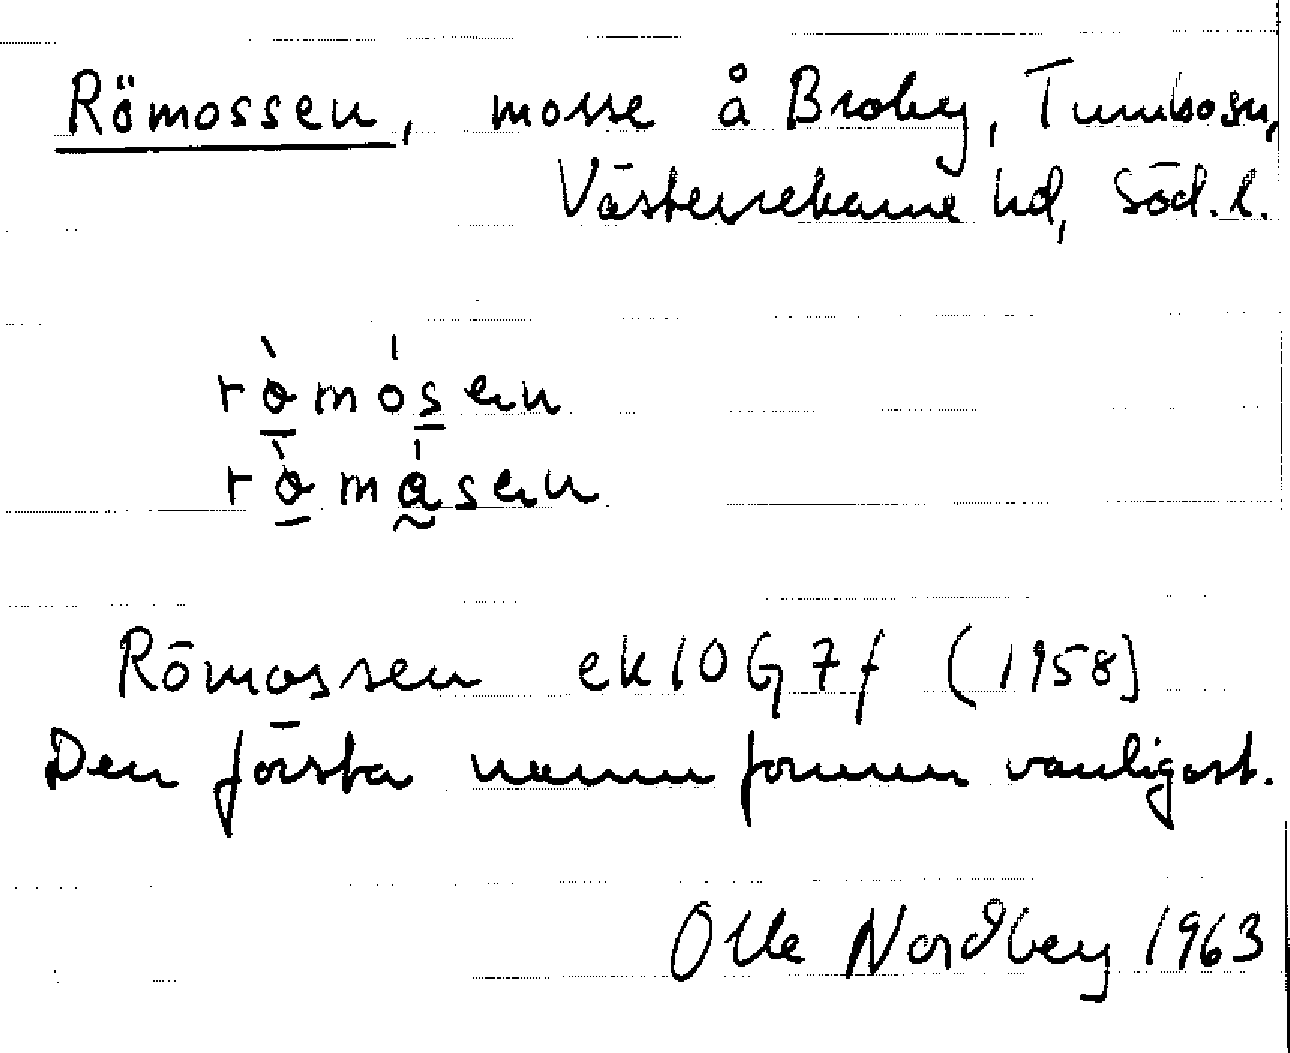 Römossen, mosse å Broby, Tumbo sn,
Västerrekarne hd, Söd. l.
Römossen ek 10G7f (1958)
Den första namnformen vanligast.
Olle Nordberg 1963